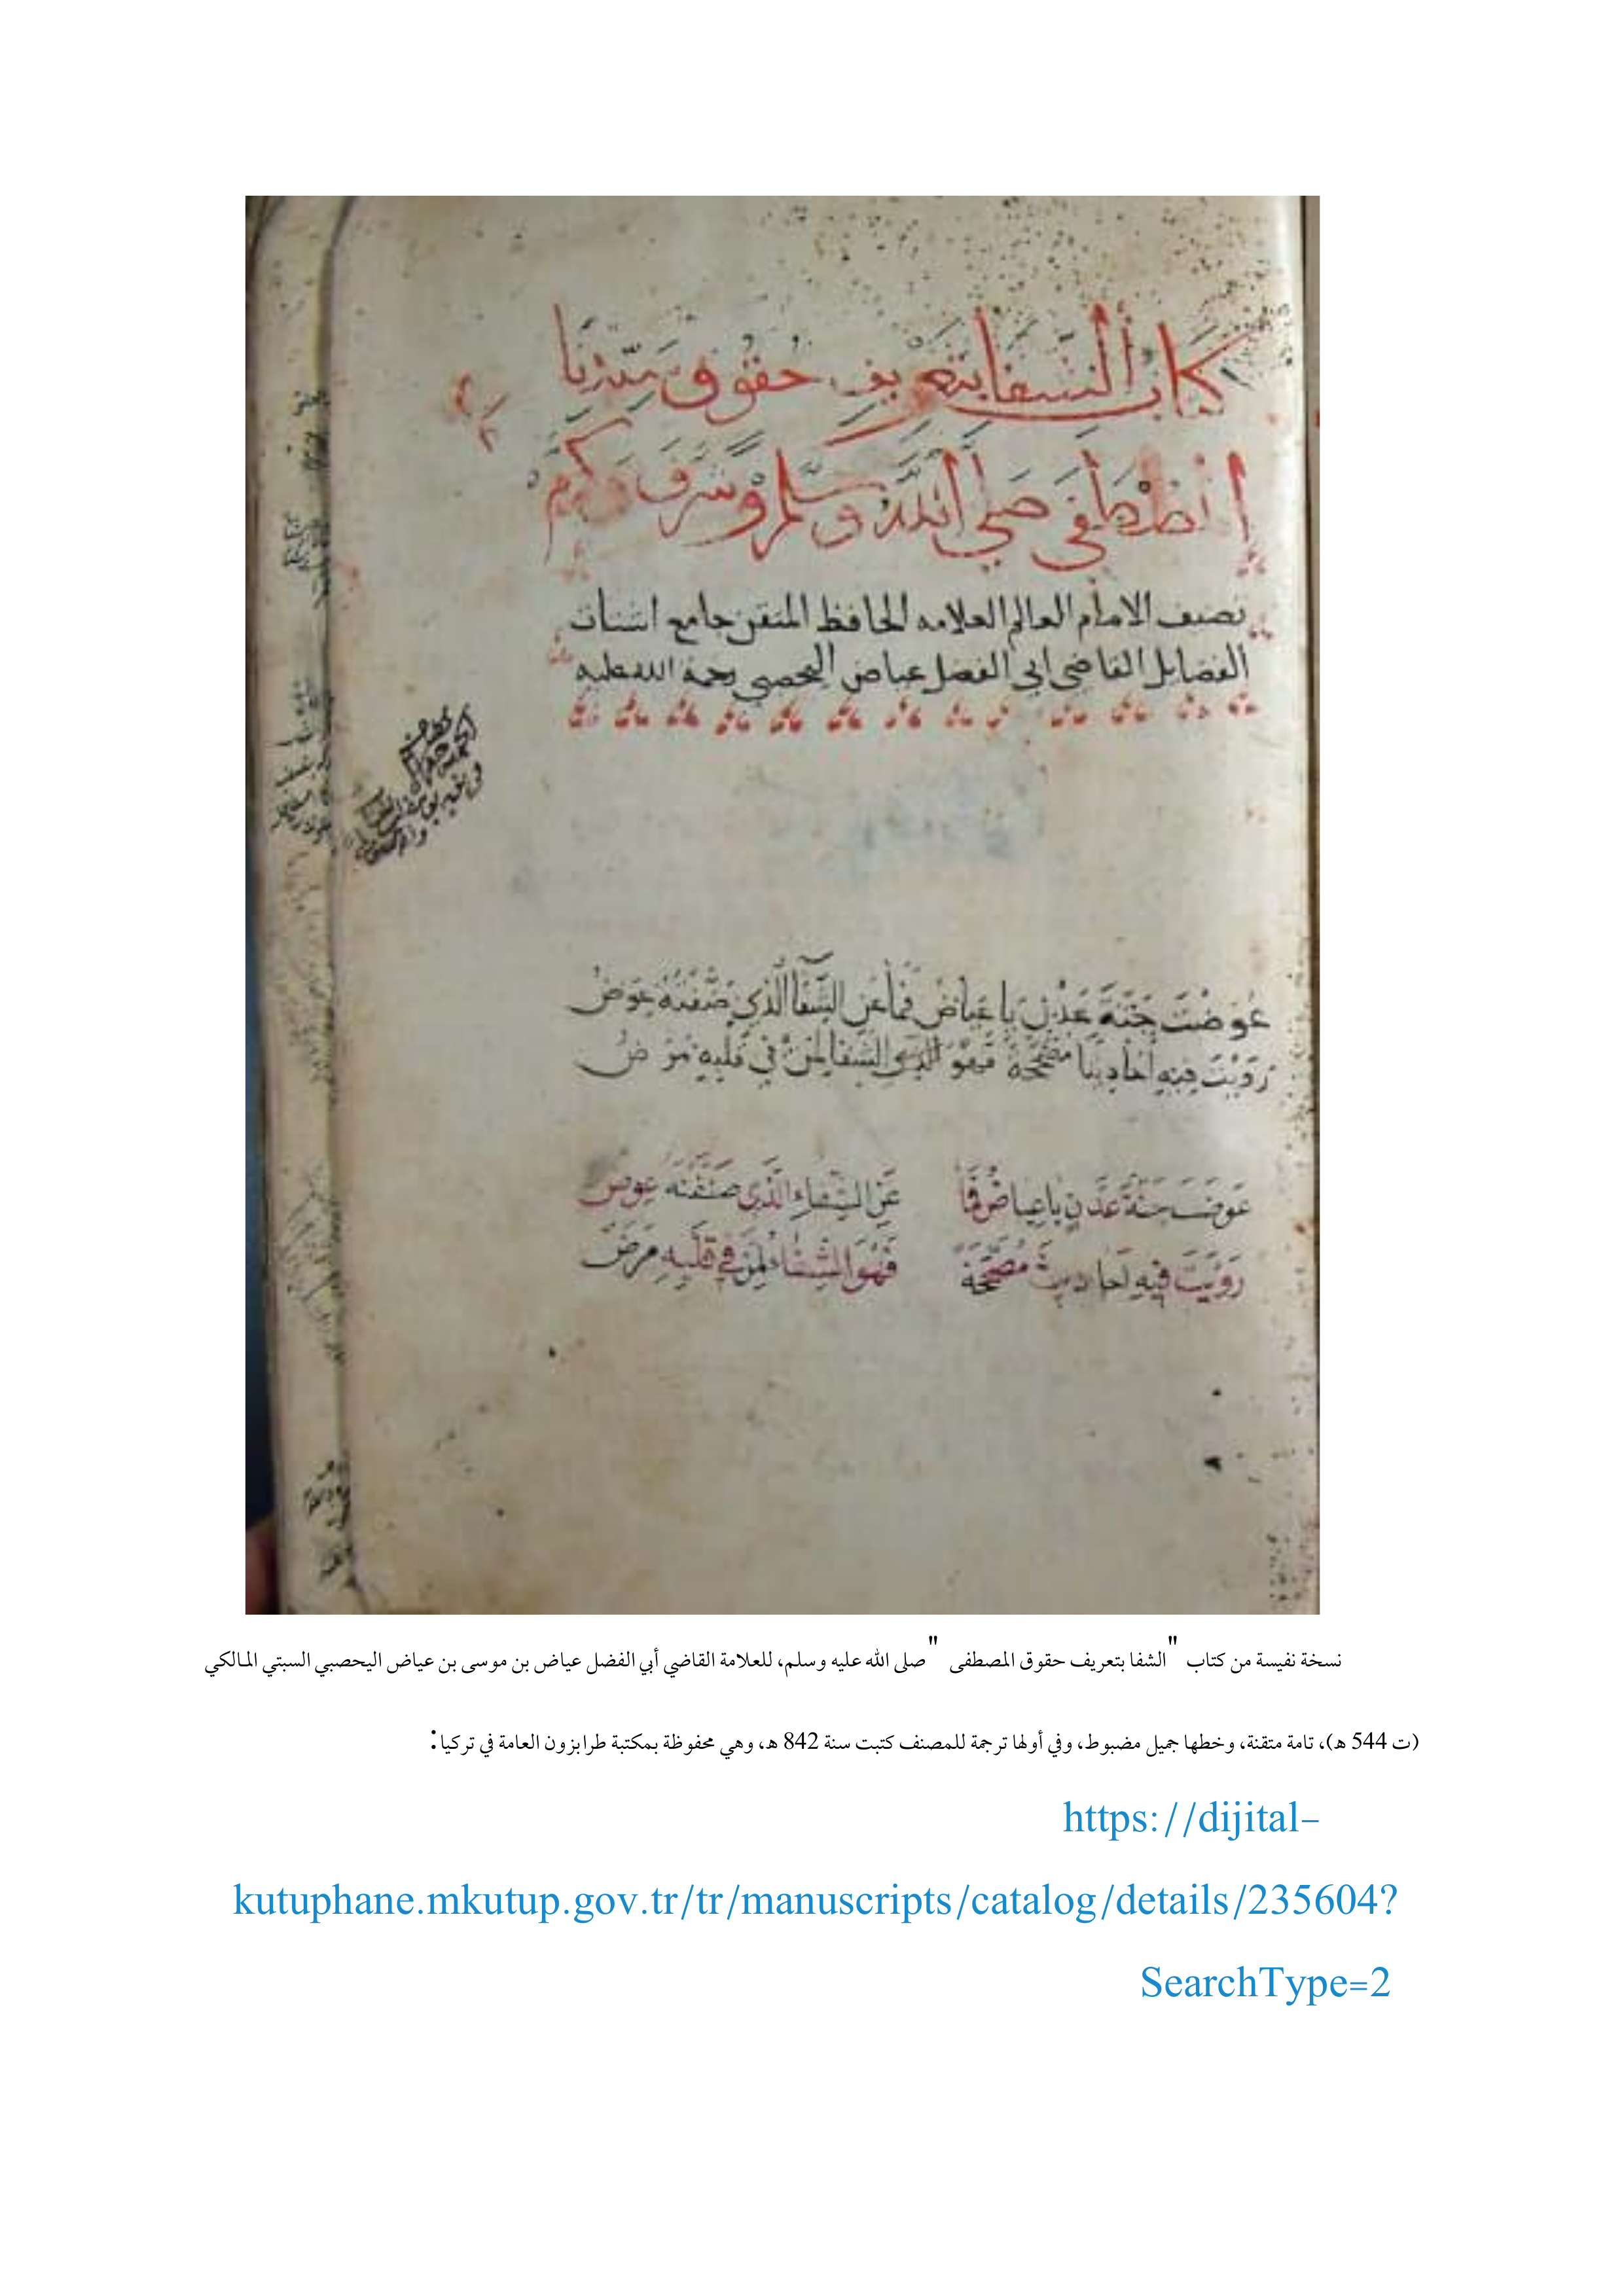 كتاب الشفا بتعريف حقوق سيدنا
المصطفى صلى الله وسلم وشرف وكرم
تصنيف الامام العالم العلامه الحافظ المتقن جامع اشتات
الفضايل القاضي ابي الفضل عياض اليحصبي رحمة الله عليه
عُوّضْتَ جَنَّةَ عَدْنٍ يا عياضُ فما عن الشّفا الّذي صَنّفتهُ عِوَضُ
رَوَيْتَ فِيهِ أحاديثًا مصَحّحةً فهو الشفا لمن في قلبهِ مرضُ
عوضت جنة عدن يا عياض فما عن الشفاء الذى صنفته عوض
رَوَيْتَ فيه احاديث مُصَحَّحَة فَهُوَ الشفاء لمن في قلبه مرض
نسخة نفيسة من كتاب "الشفا بتعريف حقوق المصطفى" صلى الله عليه وسلم، للعلامة القاضي أبي الفضل عياض بن موسى بن عياض اليحصبي السبتي المالكي
(ت 544 هـ)، تامة متقنة، وخطها جميل مضبوط، وفي أولها ترجمة للمصنف كتبت سنة 842 هـ، وهي محفوظة بمكتبة طرابزون العامة في تركيا:
https://dijital-
kutuphane.mkutup.gov.tr/tr/manuscripts/catalog/details/235604?
SearchType=2